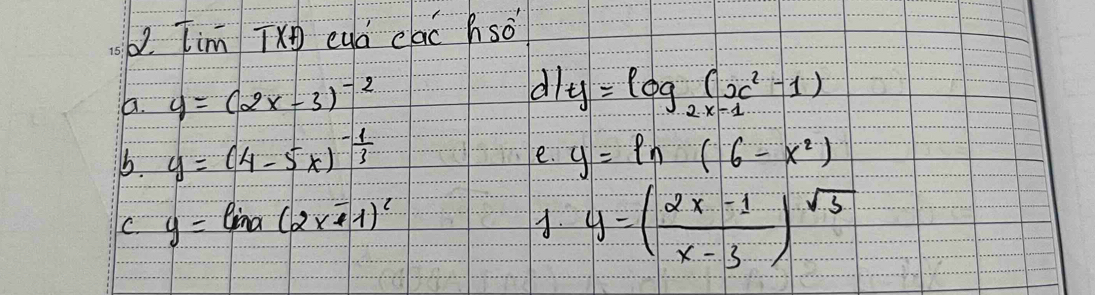 15
2. Tìm TXĐ cuả các hsố
a. y = (2x - 3)^{-2}
b. y = (4 - 5x)^{-\frac{1}{3}}
c y = (2x - 1)^2
d/ y = log_{2x-1} (x^2 - 1)
e. y = ln (6 - x^2)
f. y = (\frac{2x - 1}{x - 3})^{\sqrt{3}}